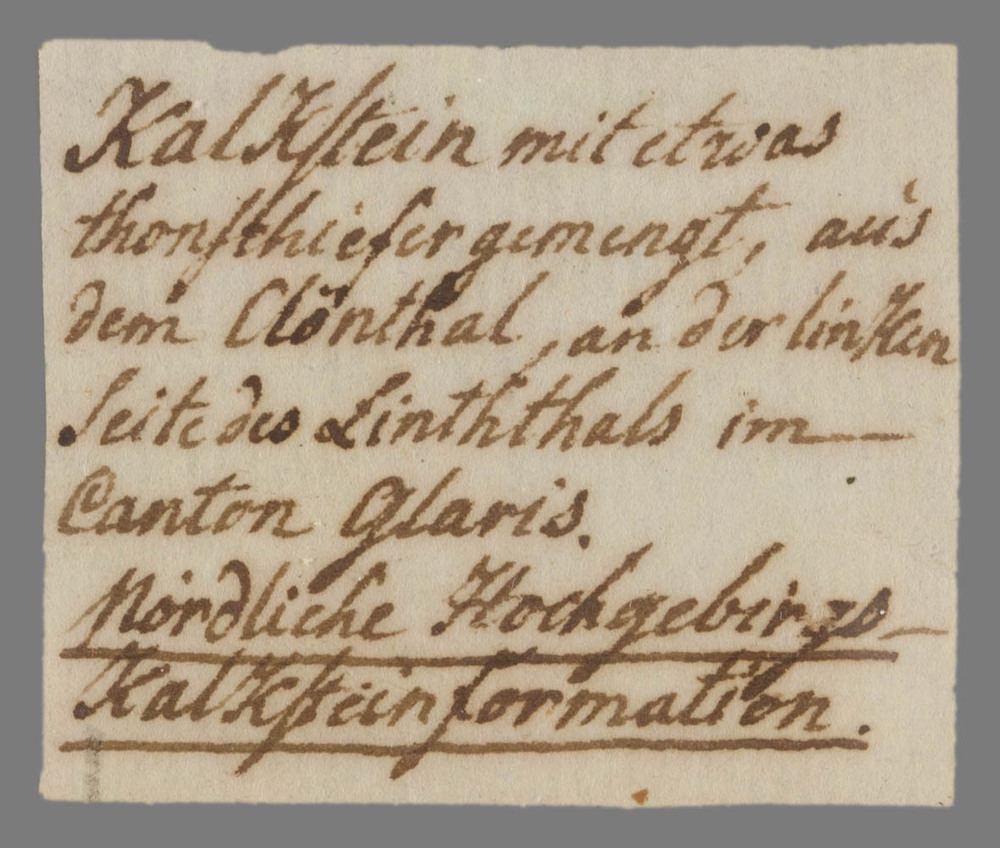 Kalkstein mit etwas
thonschiefer gemengt, aus
dem Clönthal, an der linken
Seite des Linththals im—
Canton Glaris.
Nördliche Hochgebirgs—
Kalksteinformation.